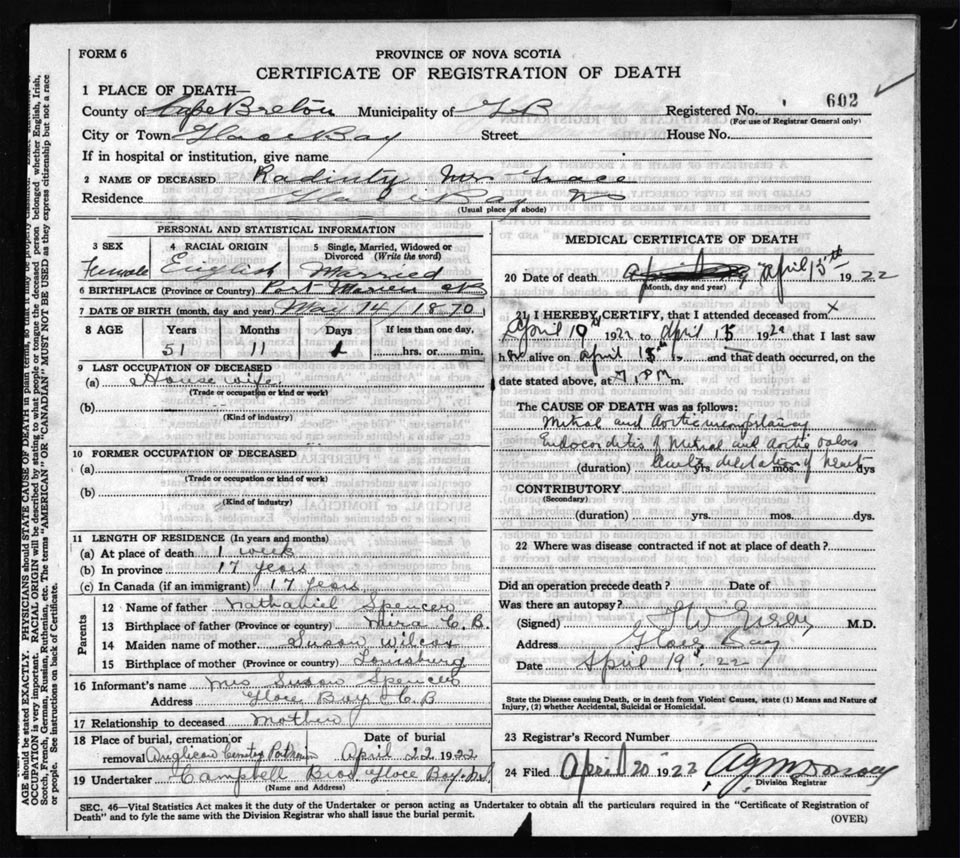 FORM 6
PROVINCE OF NOVA SCOTIA
CERTIFICATE OF REGISTRATION OF DEATH
1 PLACE OF DEATH—
County of Cape Breton Municipality of G B Registered No. 602
(For use of Registrar General only)
City or Town Glace Bay Street House No.
If in hospital or institution, give name
2 NAME OF DECEASED Mrs Grace
Residence Glace Bay NS
(Usual place of abode)
PERSONAL AND STATISTICAL INFORMATION
3 SEX 4 RACIAL ORIGIN 5 Single, Married, Widowed or Divorced (Write the word)
Female English Married
6 BIRTHPLACE (Province or Country) Port Morien CB
7 DATE OF BIRTH (month, day and year) May 14 1870
8 AGE Years Months Days If less than one day,
51 11 1 hrs. or min.
9 LAST OCCUPATION OF DECEASED
(a) House wife
(Trade or occupation or kind or work)
(b)
(Kind of industry)
10 FORMER OCCUPATION OF DECEASED
(a)
(Trade or occupation or kind of work)
(b)
(Kind of industry)
11 LENGTH OF RESIDENCE (In years and months)
(a) At place of death 1 week
(b) In province 17 years
(c) In Canada (if an immigrant) 17 years
Parents
12 Name of father Nathaniel Spencer
13 Birthplace of father (Province or country) Mira C.B.
14 Maiden name of mother Susan Wilcox
15 Birthplace of mother (Province or country) Louisburg
16 Informant's name Mrs Susan Spencer
Address Glace Bay C.B
17 Relationship to deceased Mother
18 Place of burial, cremation or removal Date of burial
Anglican Cemetry April 22 1922
19 Undertaker Campbell Bros Glace Bay N.S.
(Name and Address)
MEDICAL CERTIFICATE OF DEATH
20 Date of death April 15th 1922
(Month, day and year)
21 I HEREBY CERTIFY, that I attended deceased from X
April 1922 to April 15 1922 that I last saw
her alive on April 15th and that death occurred, on the
date stated above, at 7 P m.
The CAUSE OF DEATH was as follows:
Mitral and Aortic incompetancy
Endocarditis of Mitral and Aortic valves
(duration) yrs. dilitation of heart mos. dys
CONTRIBUTORY
(Secondary)
(duration) yrs. mos. dys.
22 Where was disease contracted if not at place of death?
Did an operation precede death? Date of
Was there an autopsy?
(Signed) M.D.
Address Glace Bay
Date April 19th 22
State the Disease causing Death, or in death from Violent Causes, state (1) Means and Nature of
Injury, (2) whether Accidental, Suicidal or Homicidal.
23 Registrar's Record Number
24 Filed April 20 1922
Division Registrar
SEC. 46—Vital Statistics Act makes it the duty of the Undertaker or person acting as Undertaker to obtain all the particulars required in the "Certificate of Registration of
Death" and to fyle the same with the Division Registrar who shall issue the burial permit.
(OVER)